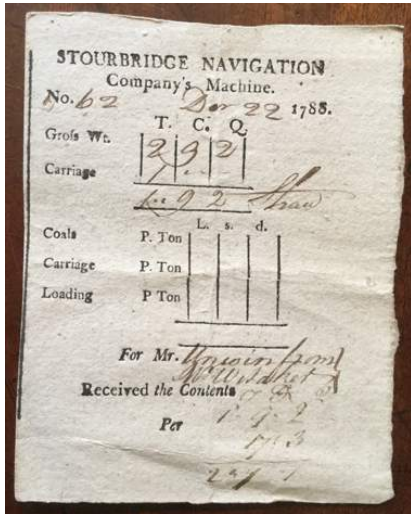 STOURBRIDGE NAVIGATION
Company's Machine.
No. 62 Der 22 1788.
T. C. Q.
Groſs Wt. 2 9 2
Carriage 1
1 9 2 Shaw
L. s. d.
Coals P. Ton
Carriage P. Ton
Loading P Ton
For Mr. Unwin from
Received the Contents
Per 1 9 2